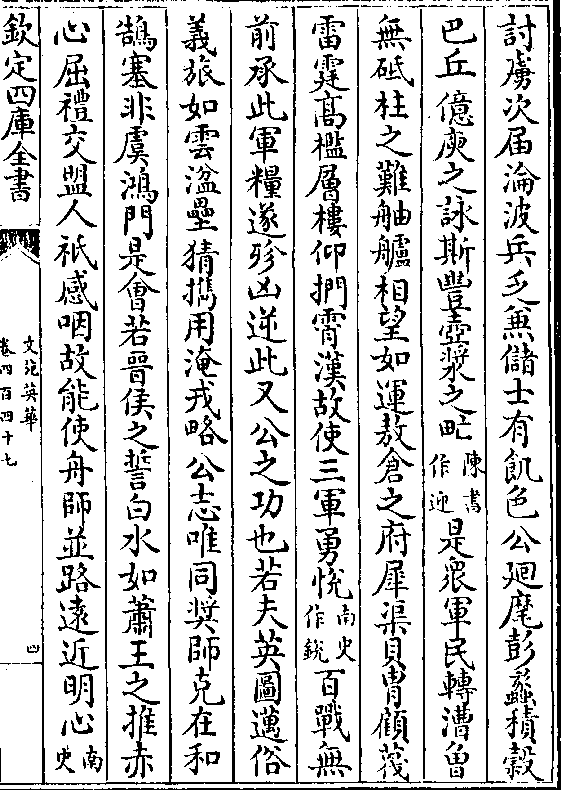 討虜次届淪波兵乏兼儲士有飢色公廻麾彭蠡積穀
巴丘億庾之詠斯豐壺漿之甿陳書作迎是衆軍民轉漕曾
無砥柱之難舳艫相望如運敖倉之府犀渠貝胄顧蔑
雷霆髙檻層樓仰捫霄漢故使三軍勇恱南史作銳百戰無
前承此軍糧遂殄凶逆此又公之功也若夫英圖邁俗
義旅如雲湓壘猜擕用淹戎略公志唯同奨師克在和
鵠塞非虞鴻門是會若晉侯之誓白水如蕭王之推赤
心屈禮交盟人祇感咽故能使舟師並路逺近朙心南史
欽定四庫全書
文苑英華
卷四百四十七
四